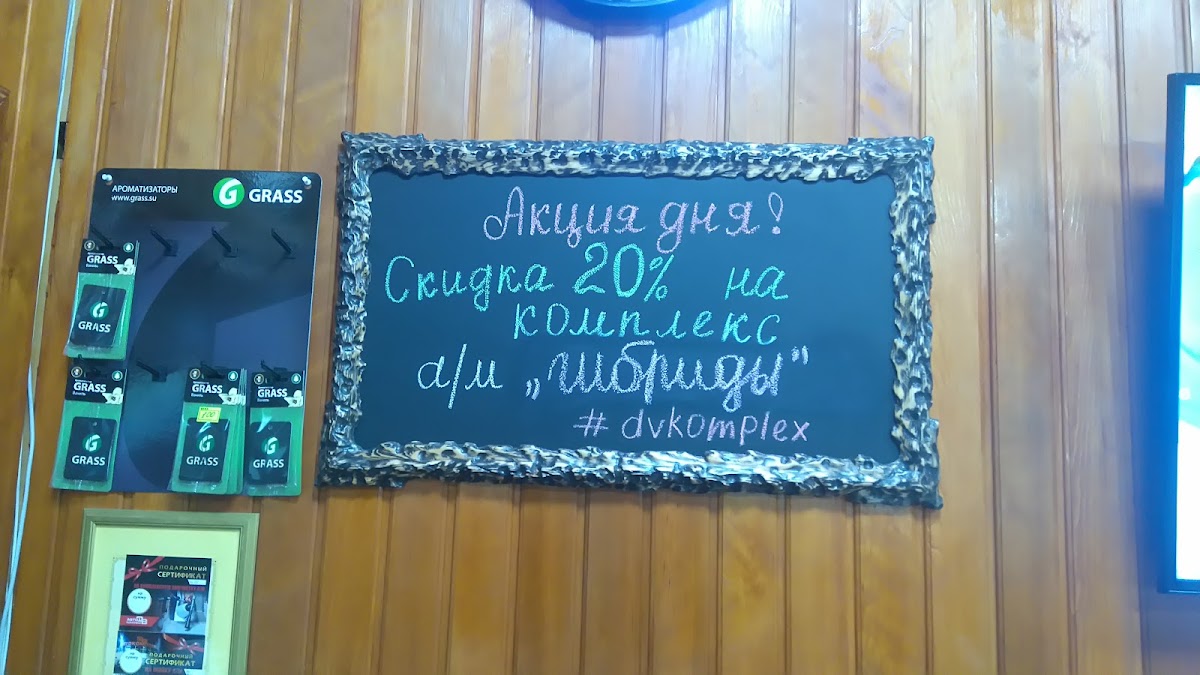 АРОМАТИЗАТОРЫ
www.grass.su
GRASS
GRASS
GRASS
GRASS
GRASS
GRASS
GRASS
GRASS
GRASS
100
Акция дня!
Скидка 20% на
комплекс
а/м „гибриды"
# dvkomplex
ПОДАРОЧНЫЙ
СЕРТИФИКАТ
СЕРТИФИКАТ